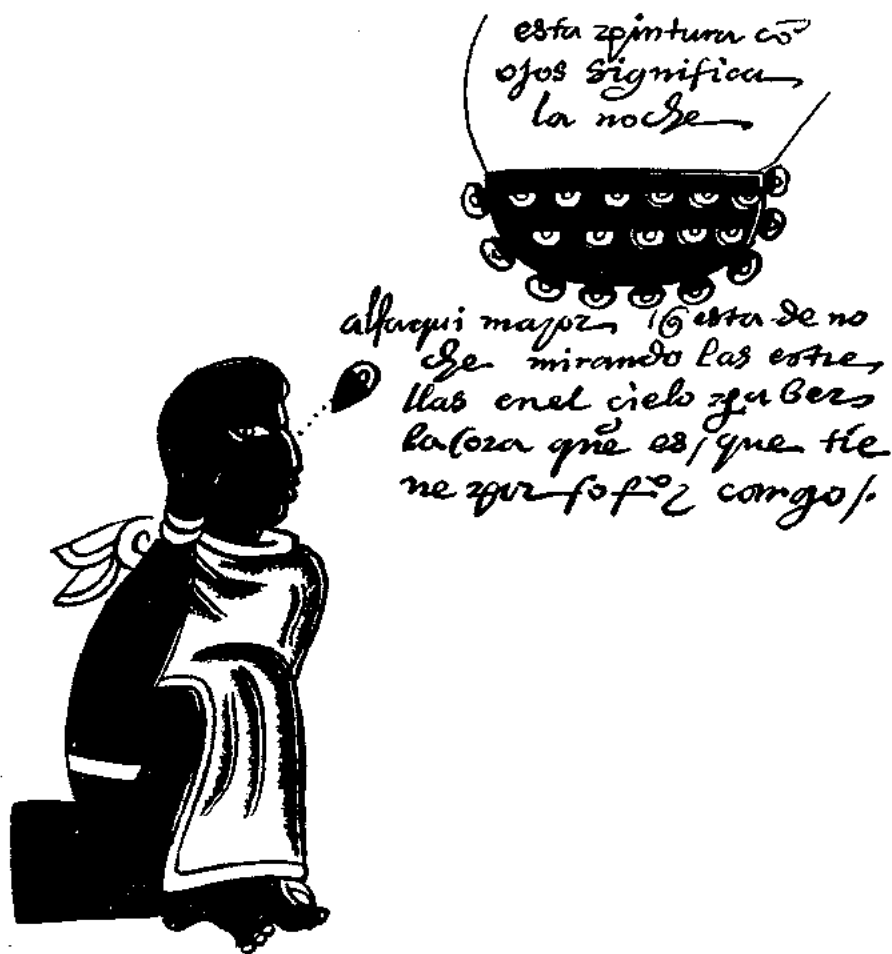 esta pintura cõ
ojos significa
la noche
alfaqui mayor q̃ esta de no
che mirando las estre
llas en el cielo pa ber
la ora que es, que tie
ne por ofiº y cargo /.